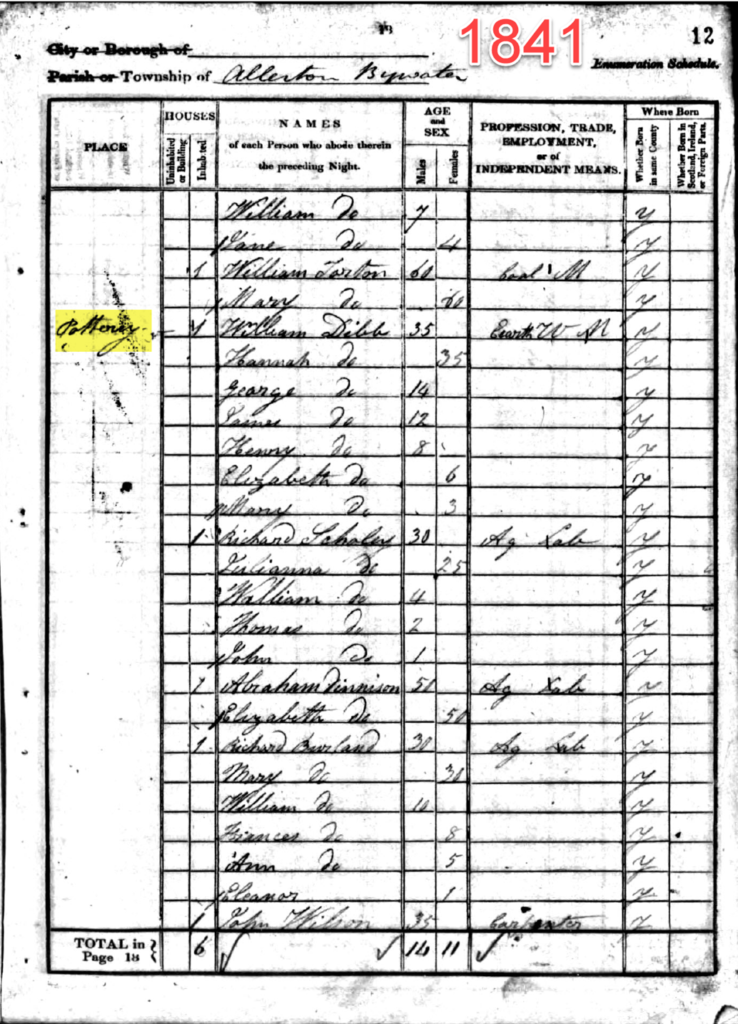 1841
12
City or Borough of
Enumeration Schedule.
Parish or Township of Allerton Bywater
PLACE
HOUSES
Uninhabited or Building
Inhabited
NAMES
of each Person who abode therein
the preceding Night.
AGE
and
SEX
Males
Females
PROFESSION, TRADE,
EMPLOYMENT,
or of
INDEPENDENT MEANS.
Where Born
Whether Born in same County
Whether Born in Scotland, Ireland, or Foreign Parts.
William do 7 y
Jane do 4 y
1 William Torton 60 Coal M y
Mary do 60 y
Pottery 1 William Dibb 35 Earth W M y
Hannah do 35 y
George do 14 y
James do 12 y
Henry do 8 y
Elizabeth do 6 y
Mary do 3 y
1 Richard Scholey 30 Ag Lab y
Julianna do 25 y
William do 4 y
Thomas do 2 y
John do 1 y
1 Abraham Dinnison 50 Ag Lab y
Elizabeth do 50 y
1 Richard Burland 30 Ag Lab y
Mary do 30 y
William do 10 y
Frances do 8 y
Ann do 5 y
Eleanor 1 y
1 John Wilson 35 Carpenter y
TOTAL in
Page 18
6 14 11